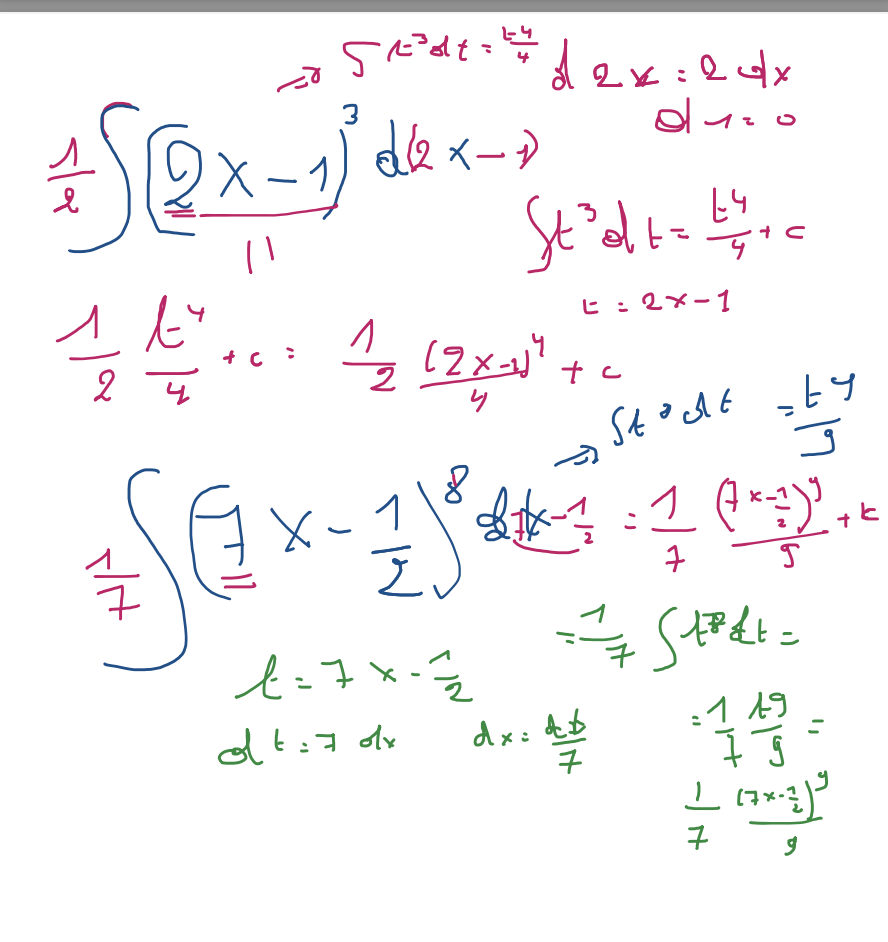 ⇒ ∫ t³ dt = t4/4
d 2x = 2 dx
d 1 = 0
1/2 ∫ (2x - 1)³ d(2x - 1)
∫ t³ dt = t4/4 + c
t = 2x - 1
1/2 t⁴/4 + c = 1/2 (2x-1)⁴/4 + c
⇒ ∫ t dt = t9/9
1/7 ∫ (7x - 1/2)⁸ d 7x - 1/2 = 1/7 (7x - 1/2)⁹/9 + c
= 1/7 ∫ t⁸ dt =
t = 7x - 1/2
dt = 7 dx
dx = dt/7
= 1/7 t9/9 =
1/7 (7x - 1/2)⁹/9